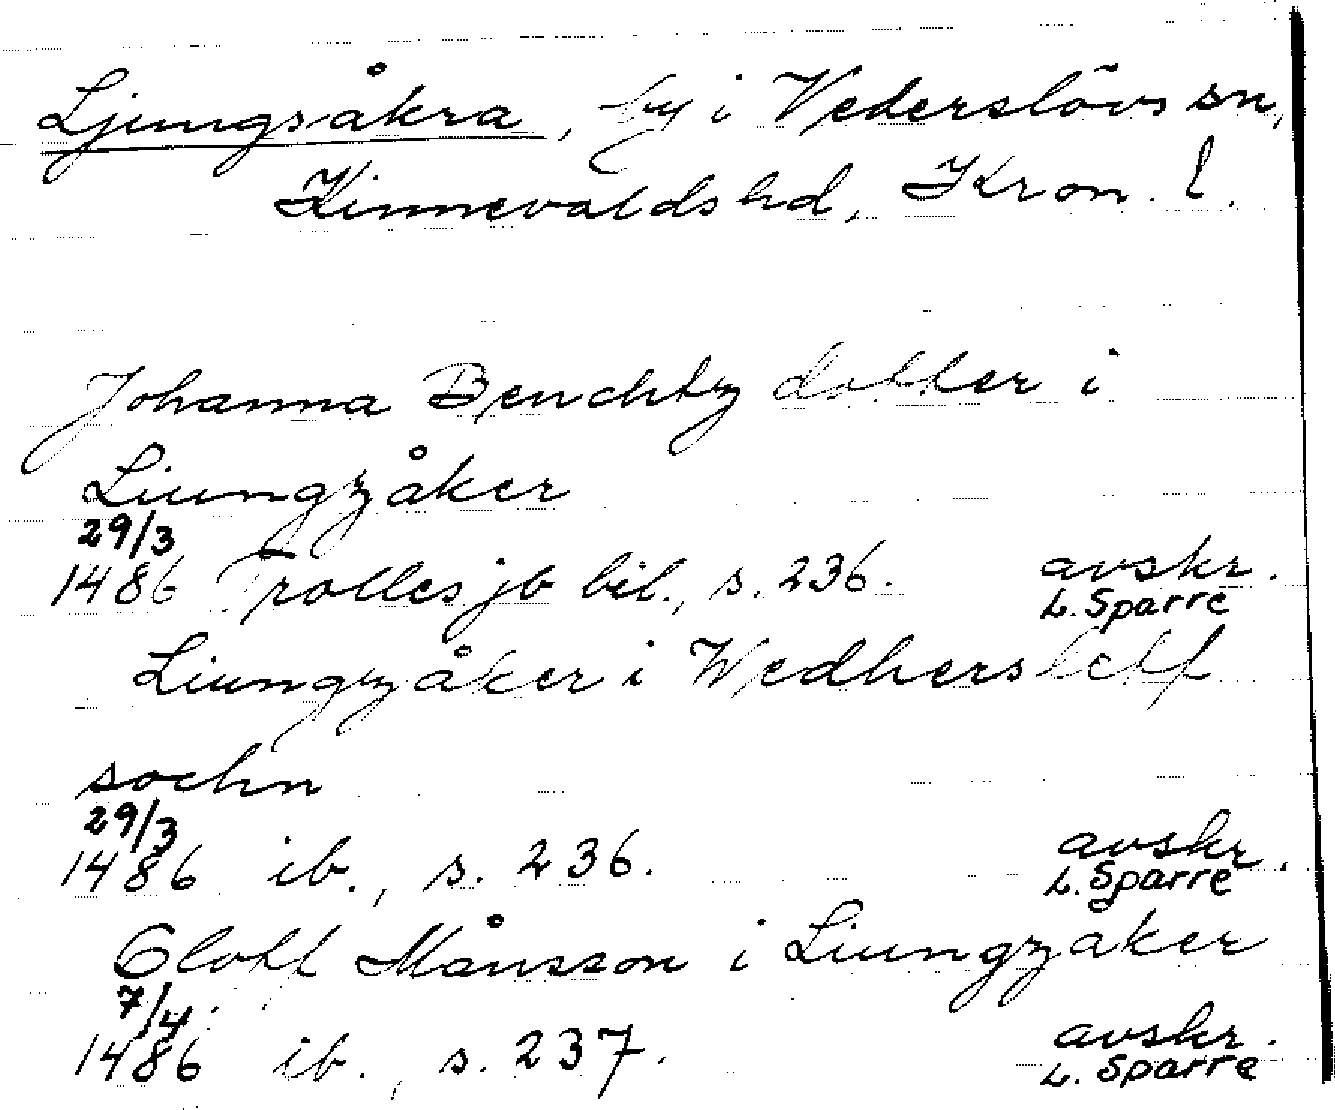 Ljungsåkra, by i Vederslövs sn,
Kinnevalds hd, Kron. l.
Johanna Benchtz dotter i
Liungzåker
29/3
1486 Trolles jb bil., s. 236. avskr.
L. Sparre
Liungzåker i Wedherslełf
sochn
29/3
1486 ib., s. 236. avskr.
L. Sparre
Oloff Månsson i Liungzaker
7/4
1486 ib., s. 237. avskr.
L. Sparre